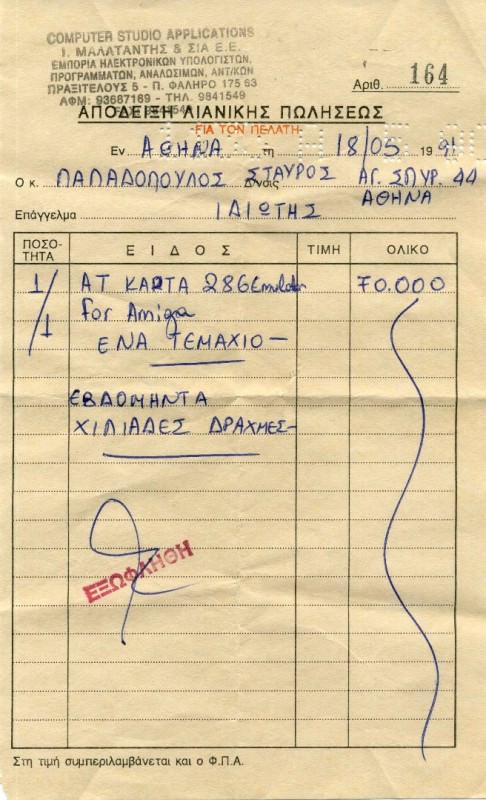 COMPUTER STUDIO APPLICATIONS
Ι. ΜΑΛΑΤΑΝΤΗΣ & ΣΙΑ Ε.Ε.
ΕΜΠΟΡΙΑ ΗΛΕΚΤΡΟΝΙΚΩΝ ΥΠΟΛΟΓΙΣΤΩΝ,
ΠΡΟΓΡΑΜΜΑΤΩΝ, ΑΝΑΛΩΣΙΜΩΝ, ΑΝΤ/ΚΩΝ
ΠΡΑΞΙΤΕΛΟΥΣ 5 - Π. ΦΑΛΗΡΟ 175 63
ΑΦΜ: 93687169 - ΤΗΛ. 9841549
Αριθ. 164
ΑΠΟΔΕΙΞΗ ΛΙΑΝΙΚΗΣ ΠΩΛΗΣΕΩΣ
ΓΙΑ ΤΟΝ ΠΕΛΑΤΗ
Εν ΑΘΗΝΑ τη 18/05 1991
Ο κ. ΠΑΠΑΔΟΠΟΥΛΟΣ ΣΤΑΥΡΟΣ Δ/νσις ΑΓ. ΣΠΥΡ. 44
ΑΘΗΝΑ
Επάγγελμα ΙΔΙΩΤΗΣ
ΠΟΣΟ-ΤΗΤΑ ΕΙΔΟΣ ΤΙΜΗ ΟΛΙΚΟ
1/1 ΑΤ ΚΑΡΤΑ 286 Emulator 70.000
For Amiga
ΕΝΑ ΤΕΜΑΧΙΟ—
ΕΒΔΟΜΗΝΤΑ
ΧΙΛΙΑΔΕΣ ΔΡΑΧΜΕΣ—
ΕΞΩΦΛΗΘΗ
Στη τιμή συμπεριλαμβάνεται και ο Φ.Π.Α.